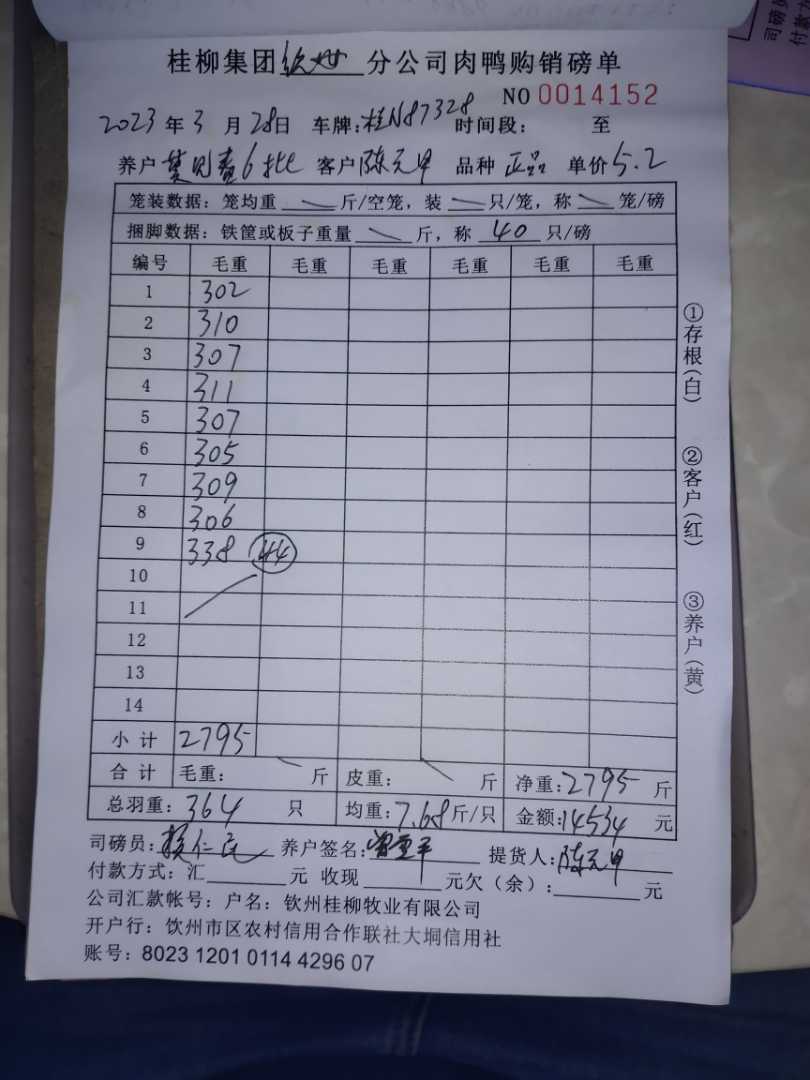 桂柳集团钦州分公司肉鸭购销磅单
NO 0014152
2023年3月28日 车牌:桂N87328 时间段: 至
养户 6批 客户陈元甲 品种 正品 单价5.2
笼装数据：笼均重 斤/空笼，装 只/笼，称 笼/磅
捆脚数据：铁筐或板子重量 斤，称 40 只/磅
编号 毛重 毛重 毛重 毛重 毛重 毛重
1 302
2 310
3 307
4 311
5 307
6 305
7 309
8 306
9 338 44
10
11
12
13
14
小计 2795
合计 毛重： 斤 皮重： 斤 净重:2795 斤
总羽重：364 只 均重:7.68斤/只 金额:14534 元
司磅员: 养户签名: 提货人:陈元甲
付款方式：汇 元 收现 元欠（余）: 元
公司汇款帐号：户名：钦州桂柳牧业有限公司
开户行：钦州市区农村信用合作联社大垌信用社
账号：8023 1201 0114 4296 07
①存根(白)
②客户(红)
③养户(黄)
司磅员